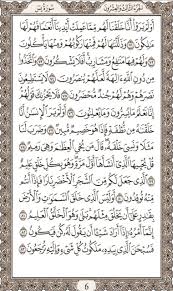 الجزء الثالث والعشرون سورة يس
أَوَلَمْ يَرَوْا أَنَّا خَلَقْنَا لَهُم مِّمَّا عَمِلَتْ أَيْدِينَا أَنْعَٰمًا فَهُمْ لَهَا
مَٰلِكُونَ ۝ وَذَلَّلْنَٰهَا لَهُمْ فَمِنْهَا رَكُوبُهُمْ وَمِنْهَا يَأْكُلُونَ
۝ وَلَهُمْ فِيهَا مَنَٰفِعُ وَمَشَارِبُ أَفَلَا يَشْكُرُونَ ۝ وَاتَّخَذُوا
مِن دُونِ اللَّهِ ءَالِهَةً لَّعَلَّهُمْ يُنصَرُونَ ۝ لَا يَسْتَطِيعُونَ
نَصْرَهُمْ وَهُمْ لَهُمْ جُندٌ مُّحْضَرُونَ ۝ فَلَا يَحْزُنكَ قَوْلُهُمْ
إِنَّا نَعْلَمُ مَا يُسِرُّونَ وَمَا يُعْلِنُونَ ۝ أَوَلَمْ يَرَ الْإِنسَٰنُ أَنَّا
خَلَقْنَٰهُ مِن نُّطْفَةٍ فَإِذَا هُوَ خَصِيمٌ مُّبِينٌ ۝ وَضَرَبَ لَنَا
مَثَلًا وَنَسِيَ خَلْقَهُ قَالَ مَن يُحْيِ الْعِظَٰمَ وَهِيَ رَمِيمٌ ۝
قُلْ يُحْيِيهَا الَّذِي أَنشَأَهَا أَوَّلَ مَرَّةٍ وَهُوَ بِكُلِّ خَلْقٍ عَلِيمٌ
۝ الَّذِي جَعَلَ لَكُم مِّنَ الشَّجَرِ الْأَخْضَرِ نَارًا فَإِذَا أَنتُم
مِّنْهُ تُوقِدُونَ ۝ أَوَلَيْسَ الَّذِي خَلَقَ السَّمَٰوَٰتِ وَالْأَرْضَ
بِقَٰدِرٍ عَلَىٰ أَن يَخْلُقَ مِثْلَهُم بَلَىٰ وَهُوَ الْخَلَّٰقُ الْعَلِيمُ ۝
إِنَّمَا أَمْرُهُ إِذَا أَرَادَ شَيْئًا أَن يَقُولَ لَهُ كُن فَيَكُونُ ۝
فَسُبْحَٰنَ الَّذِي بِيَدِهِ مَلَكُوتُ كُلِّ شَيْءٍ وَإِلَيْهِ تُرْجَعُونَ ۝
6